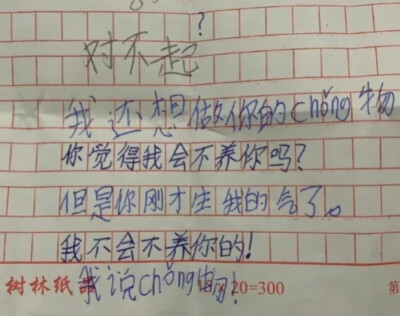 ?
对不起
我还想做你的chǒng物
你觉得我会不养你吗?
但是你刚才生我的气了。
我不会不养你的!
树林纸
我说chǒng物!
20=300
第